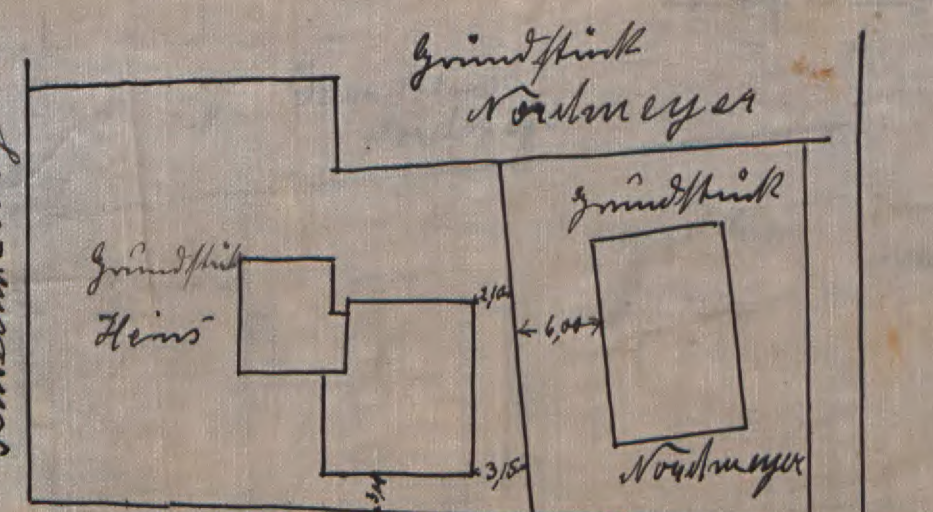 Grundstück
Nordmeyer
Grundstück
Grundstück
Heins
2,10
6,00
3,15
Nordmeyer